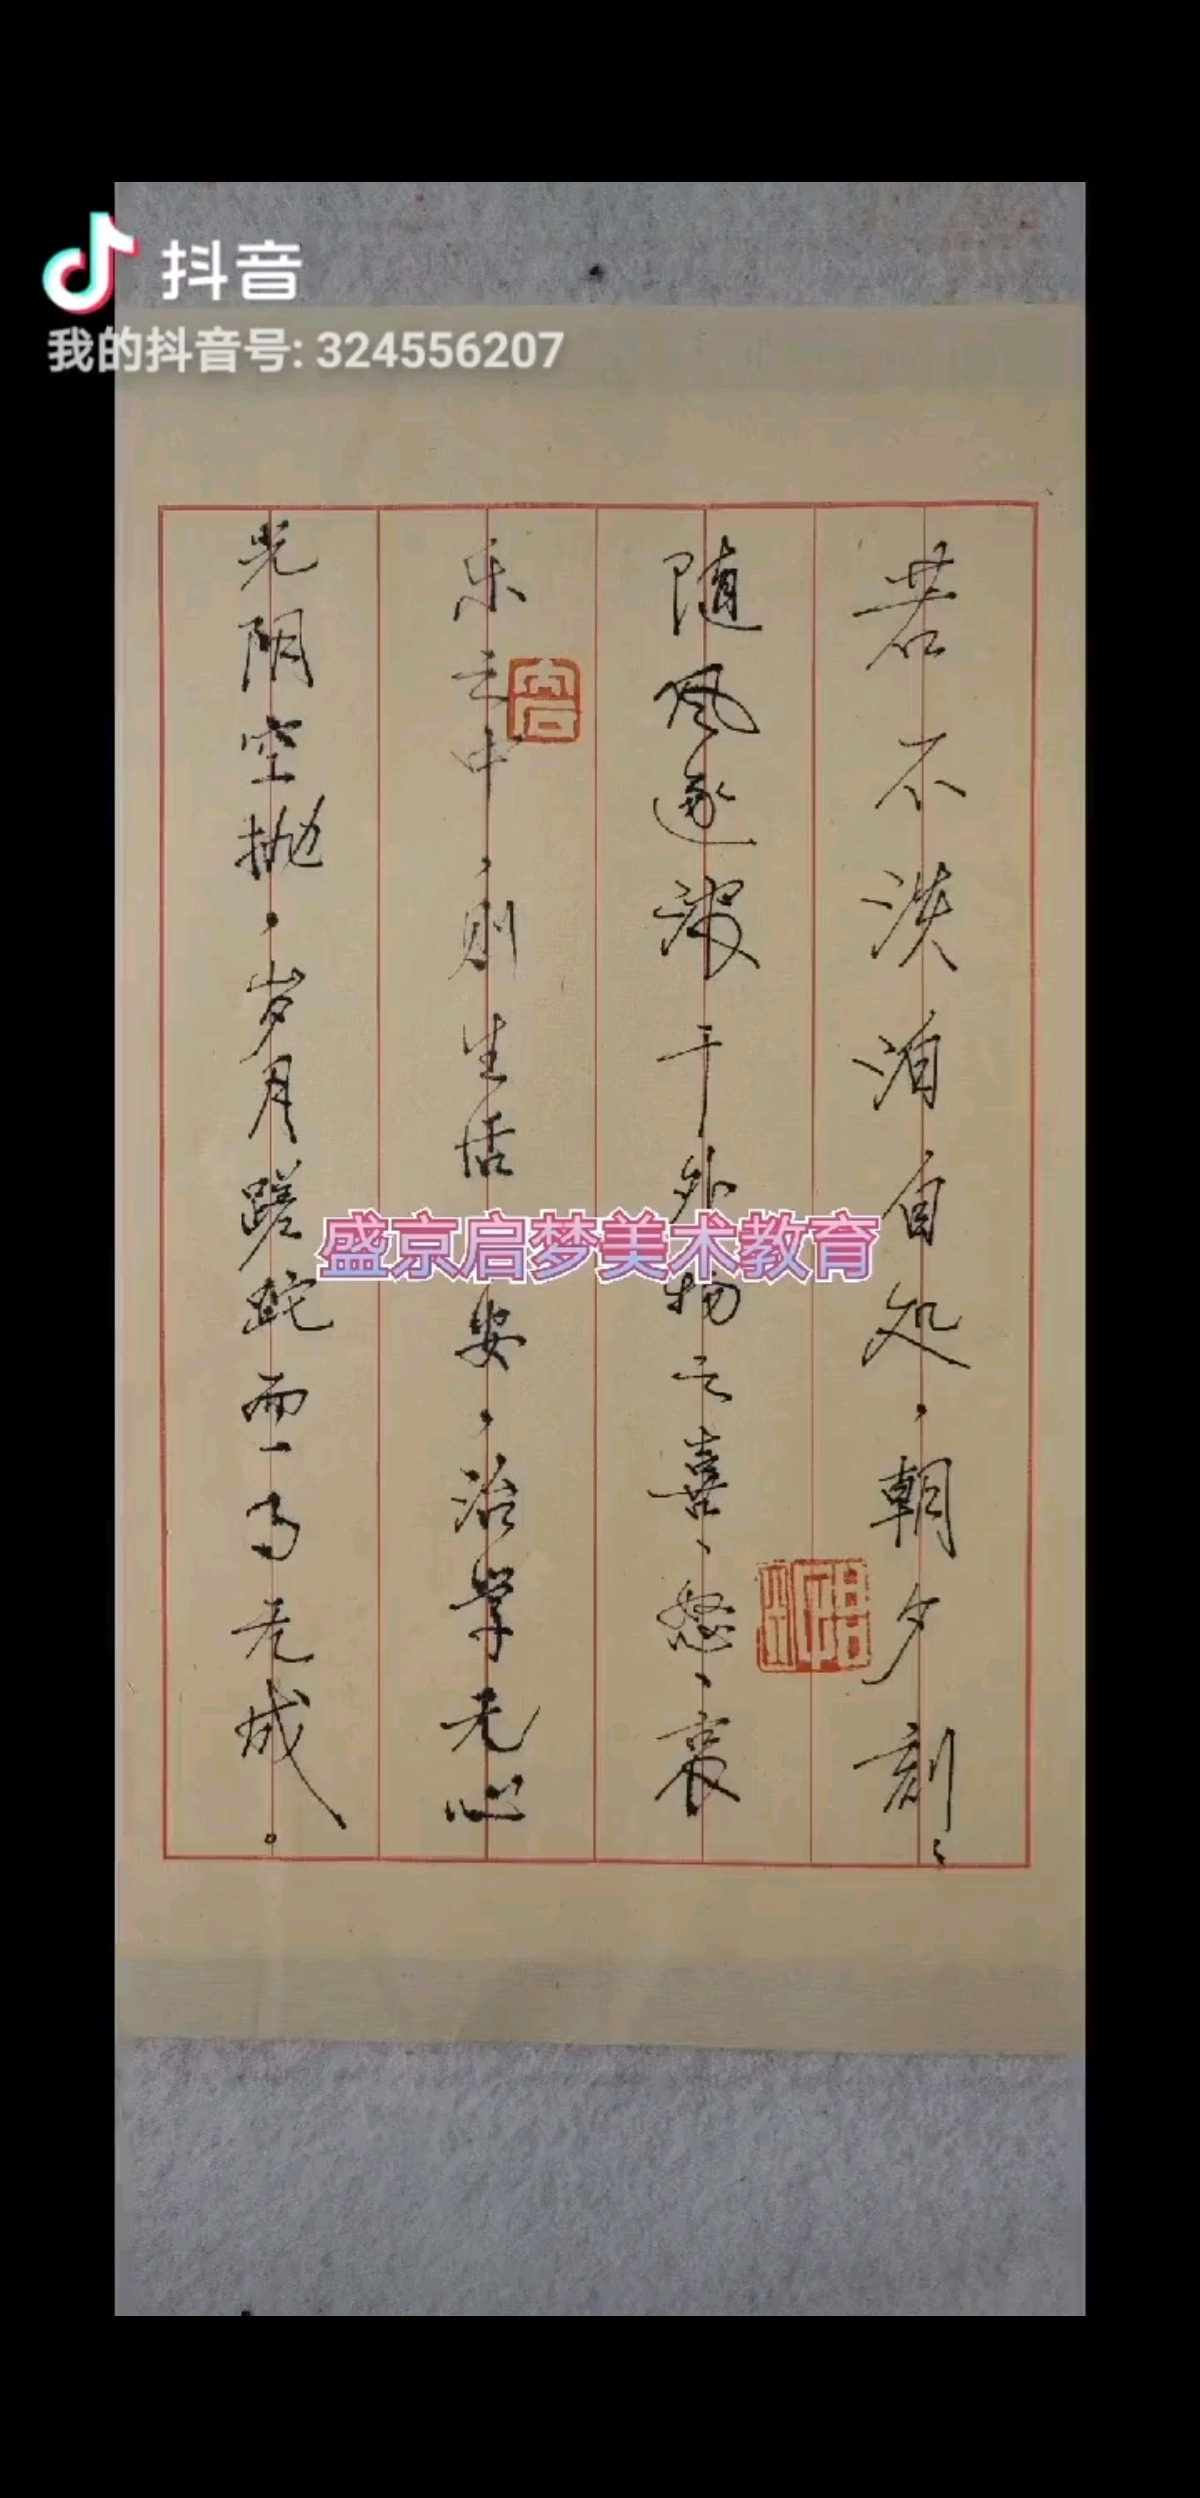 抖音
我的抖音号: 324556207
若不淡泊自处，朝夕刻刻
随风逐波于外物之喜、怒、哀
乐之中，则生活 安，治学无心
光阴空抛，岁月蹉跎而一事无成。
盛京启梦美术教育